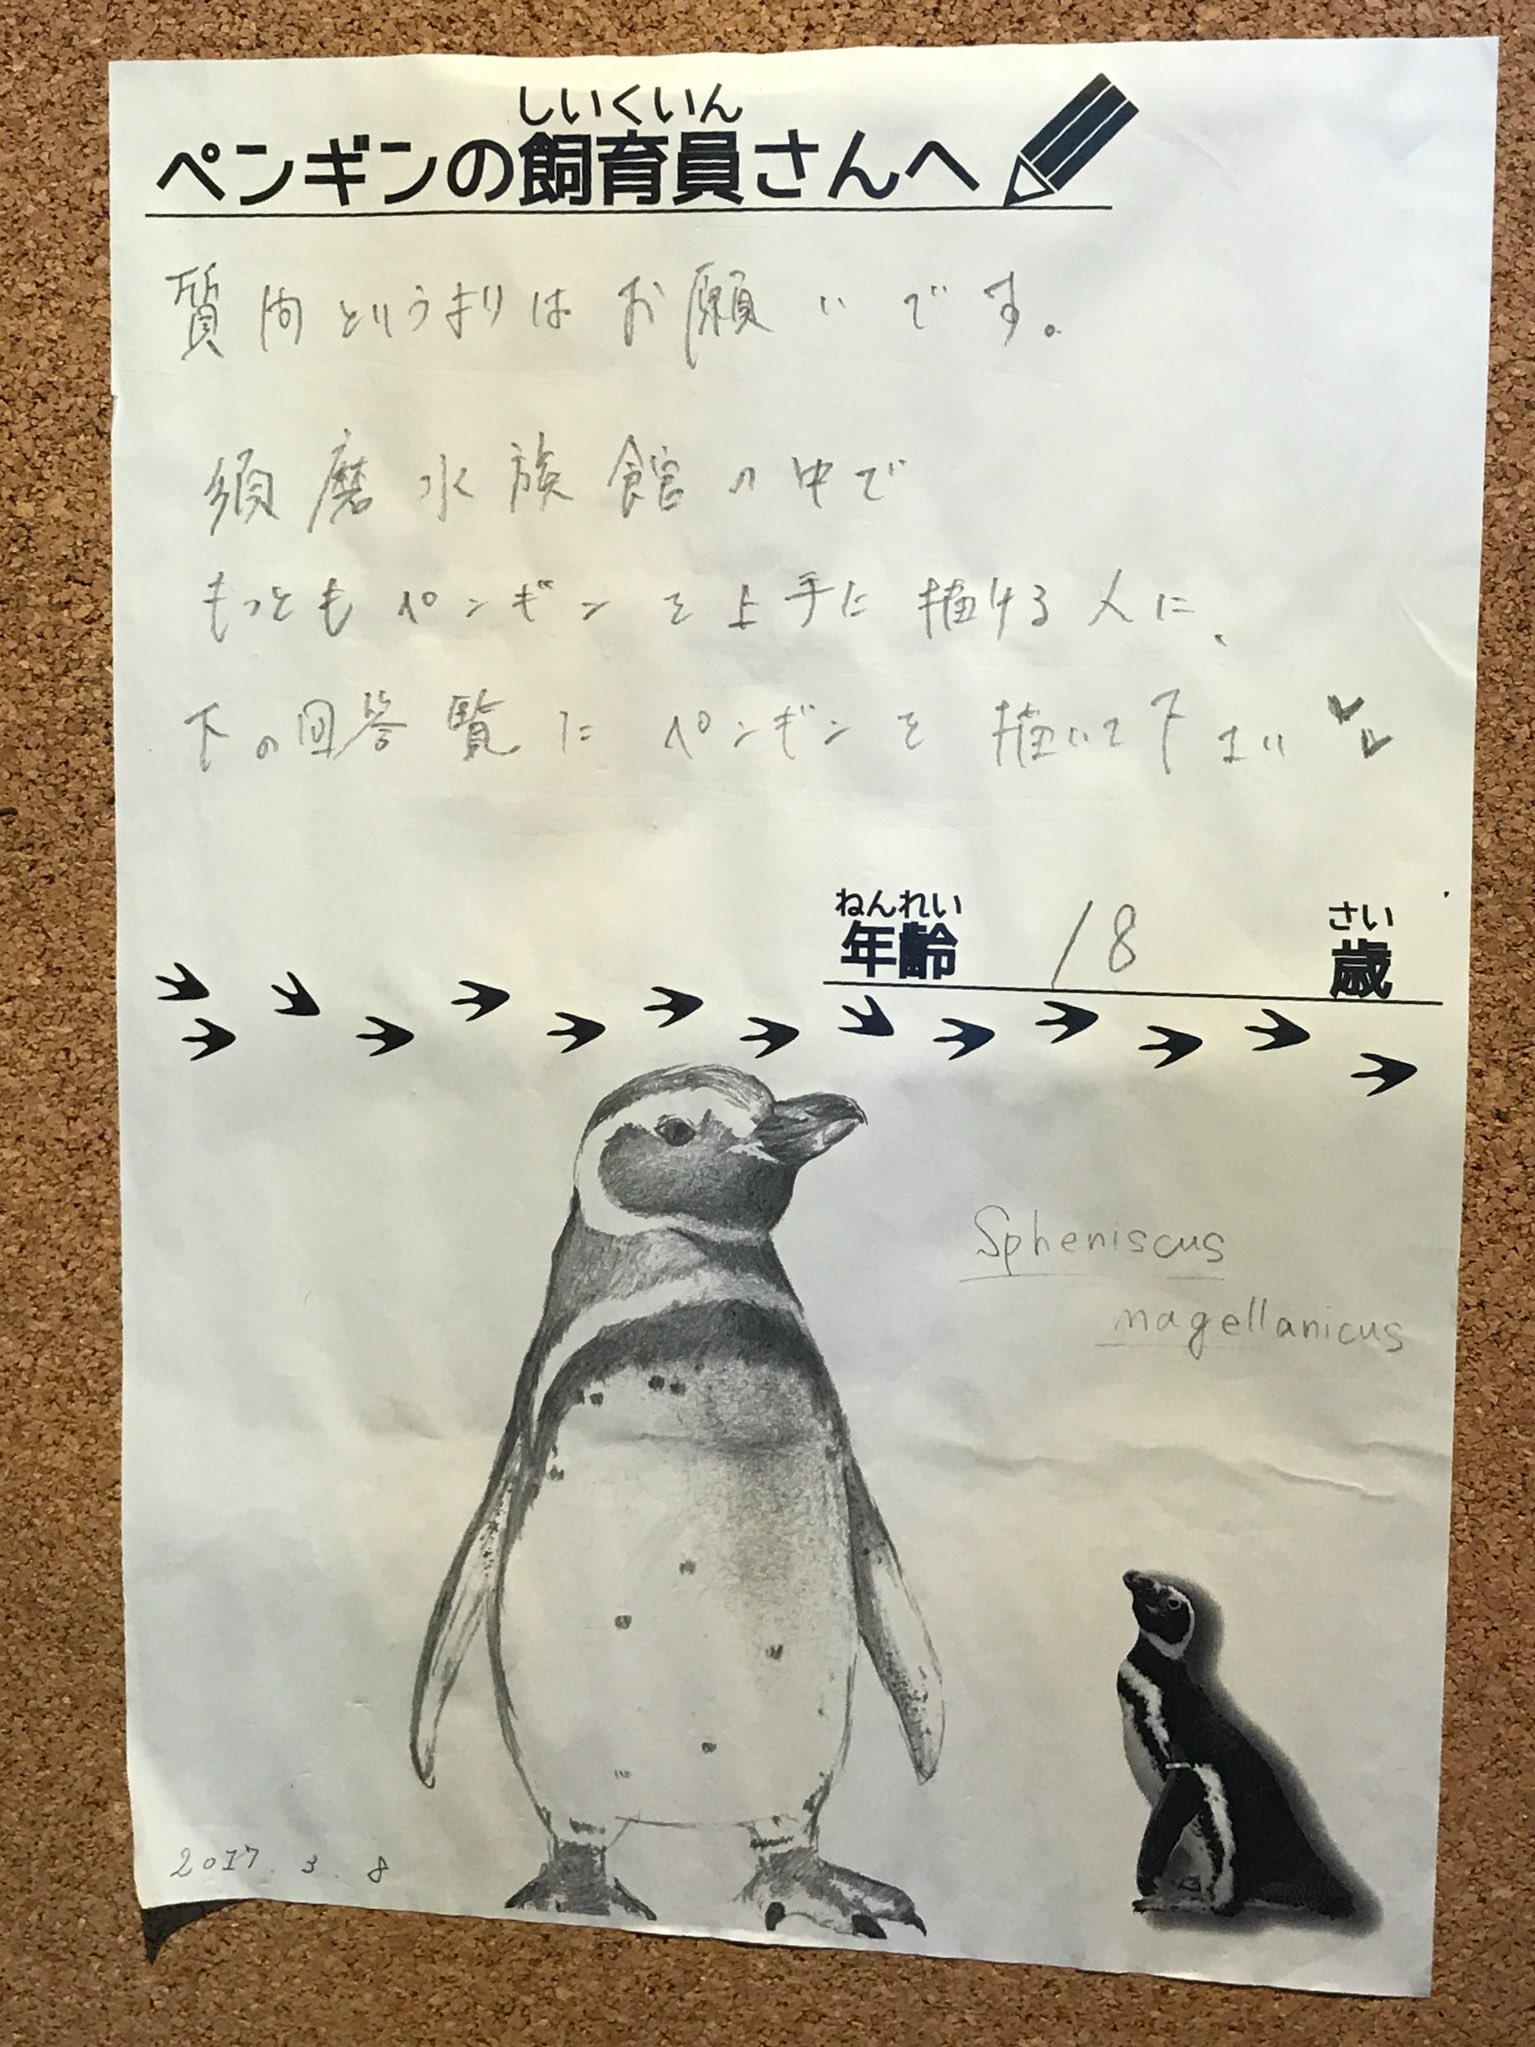 しいくいん
ペンギンの飼育員さんへ
質問というよりはお願いです。
須磨水族館の中で
もっともペンギンを上手に描ける人に、
下の回答覧にペンギンを描いて下さい
ねんれい さい
年齢 18 歳
Spheniscus
magellanicus
2017.3.8